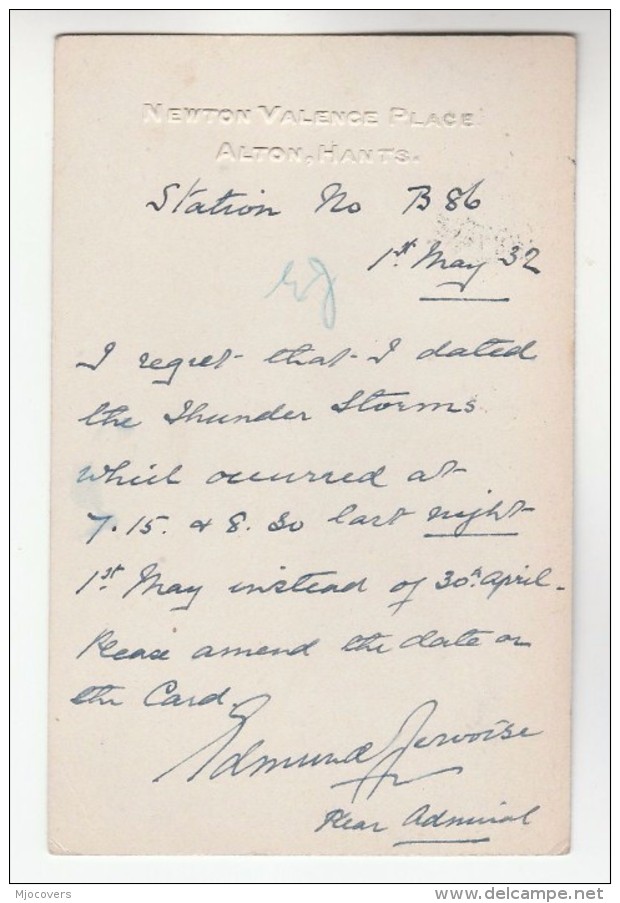 NEWTON VALENCE PLACE
ALTON, HANTS.
Station No B 86
1st May 32
I regret that I dated
the Thunder Storms
which occurred at
7.15. & 8.30 last night
1st May instead of 30th April -
Please amend the date on
the Card.
Edmund Jervoise
Rear Admiral
Mjocovers
delcampe.net